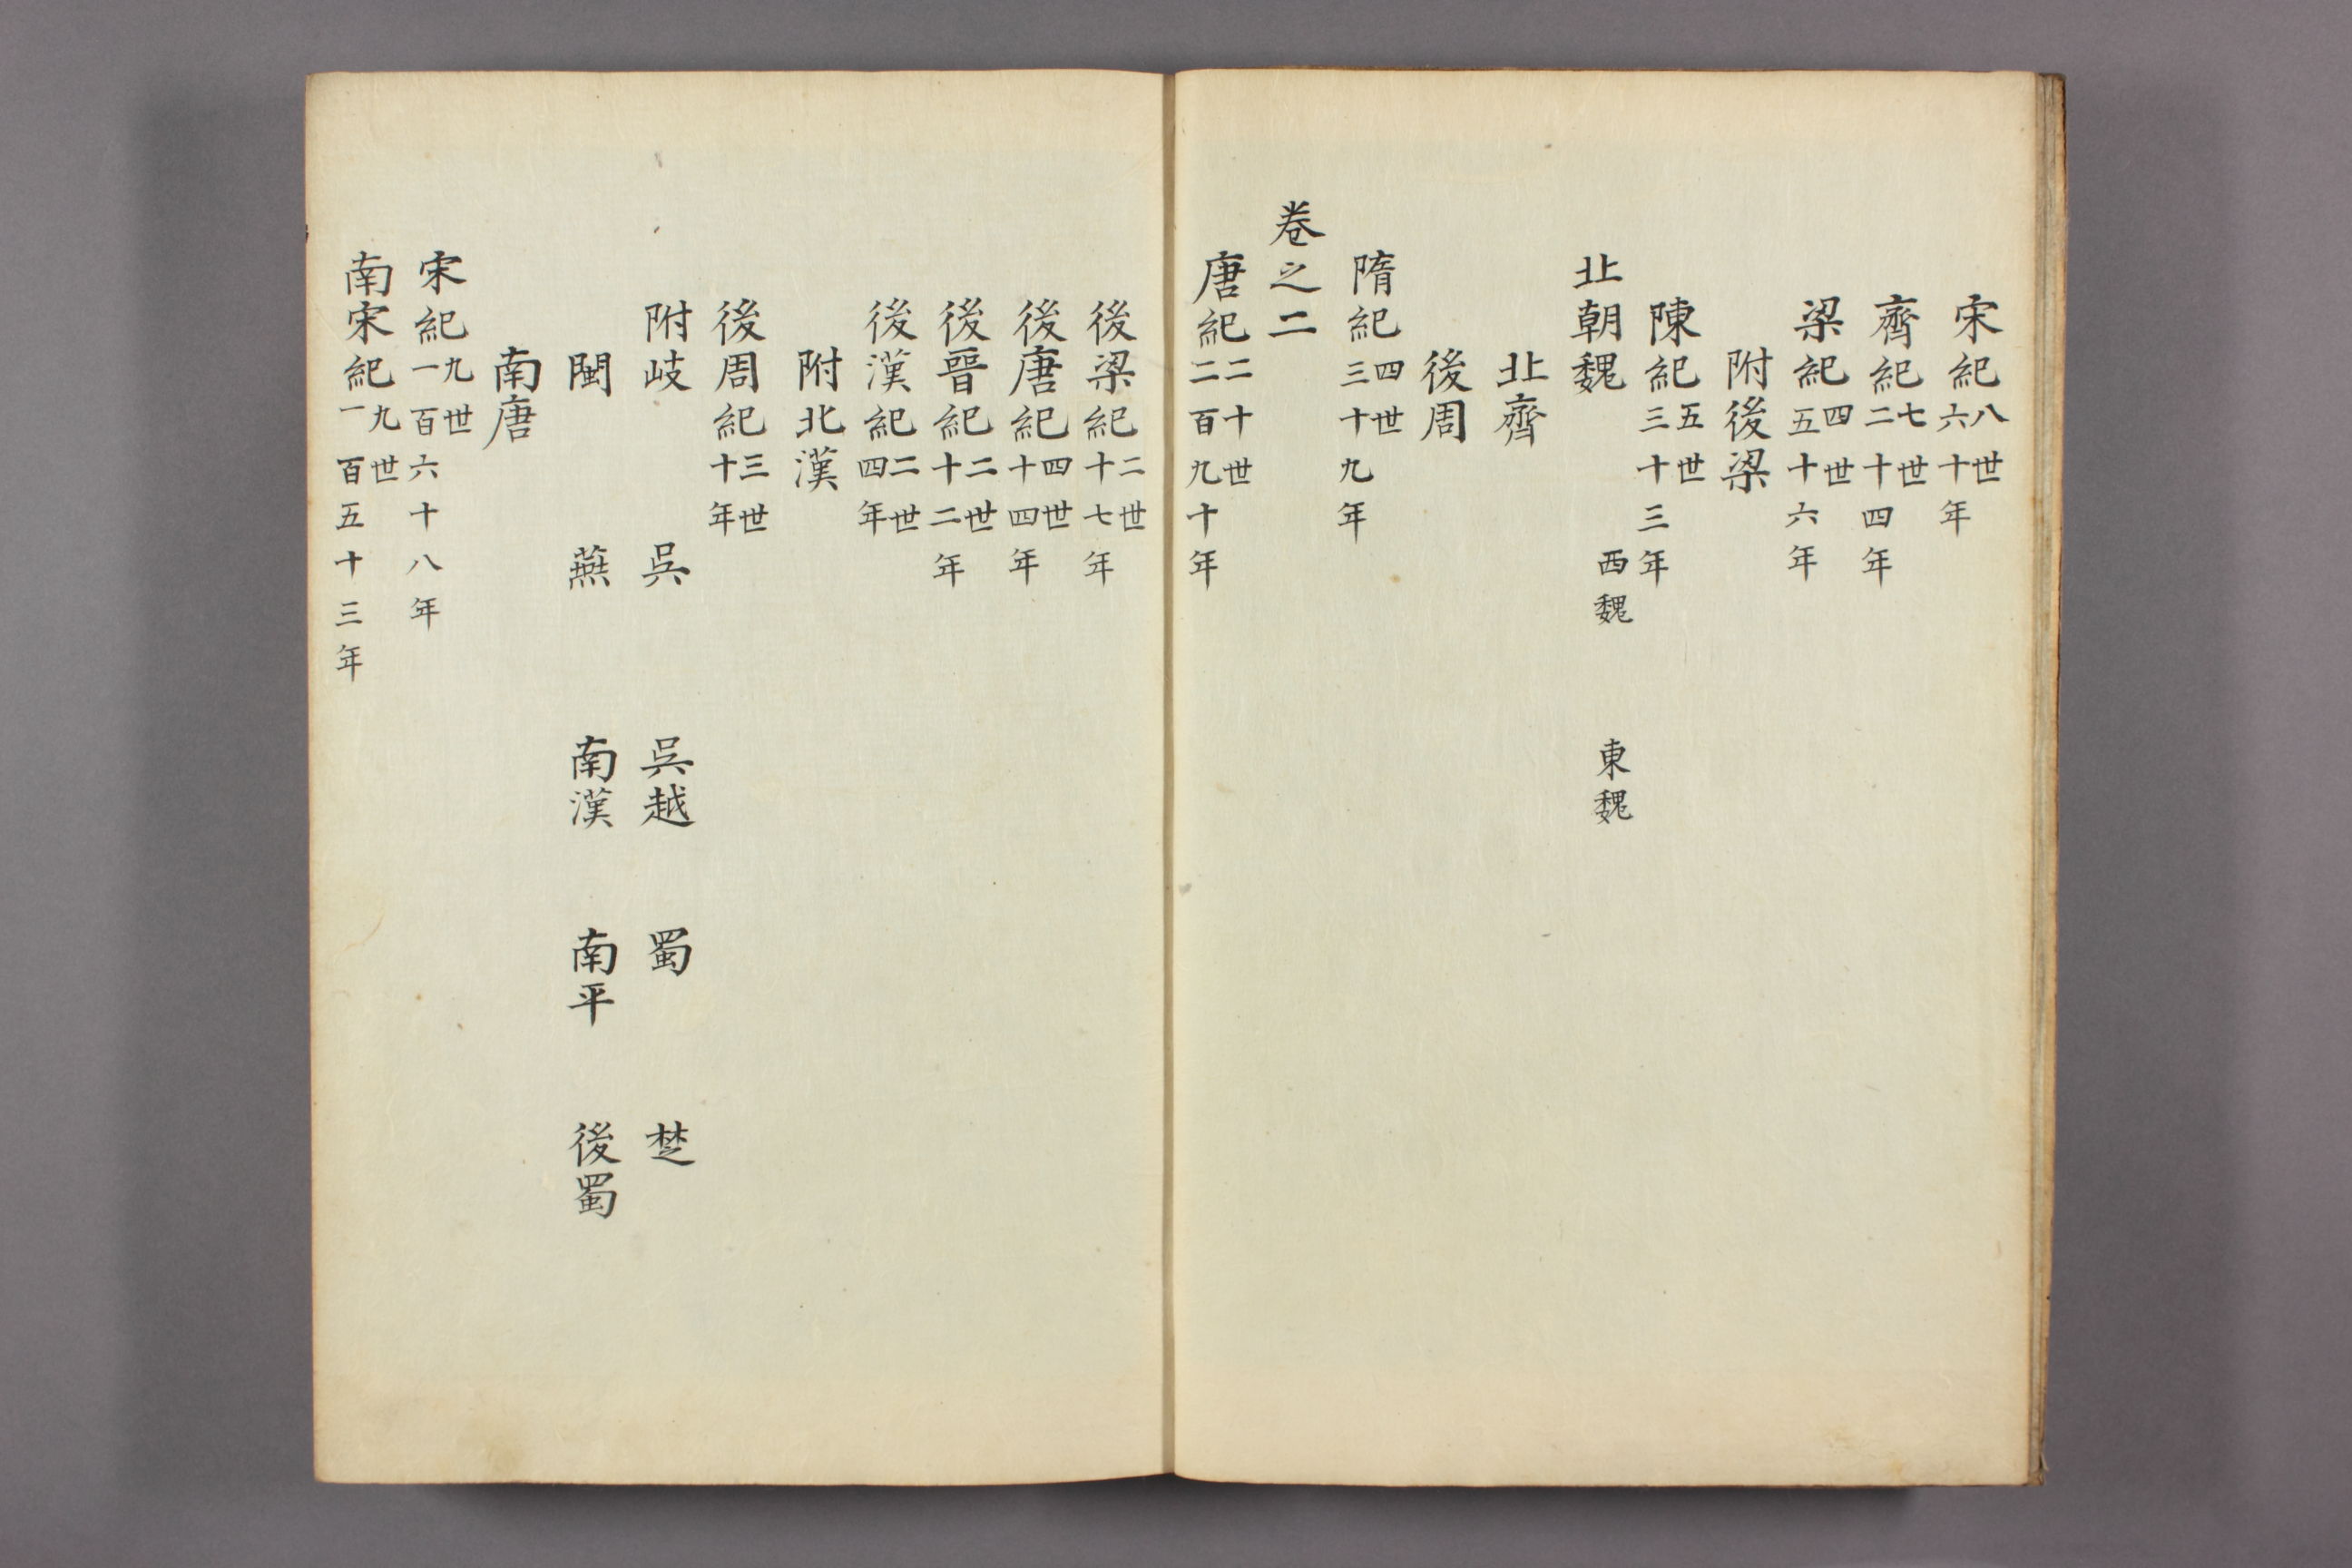 宋紀八世六十年
齊紀七世二十四年
梁紀四世五十六年
附後梁
陳紀五世三十三年
北朝魏 西魏 東魏
北齊
後周
隋紀四世三十九年
卷之二
唐紀二十世二百九十年
後梁紀二世十七年
後唐紀四世十四年
後晉紀二世十二年
後漢紀二世四年
附北漢
後周紀三世十年
附岐 吳 吳越 蜀 楚
閩 燕 南漢 南平 後蜀
南唐
宋紀九世一百六十八年
南宋紀九世一百五十三年